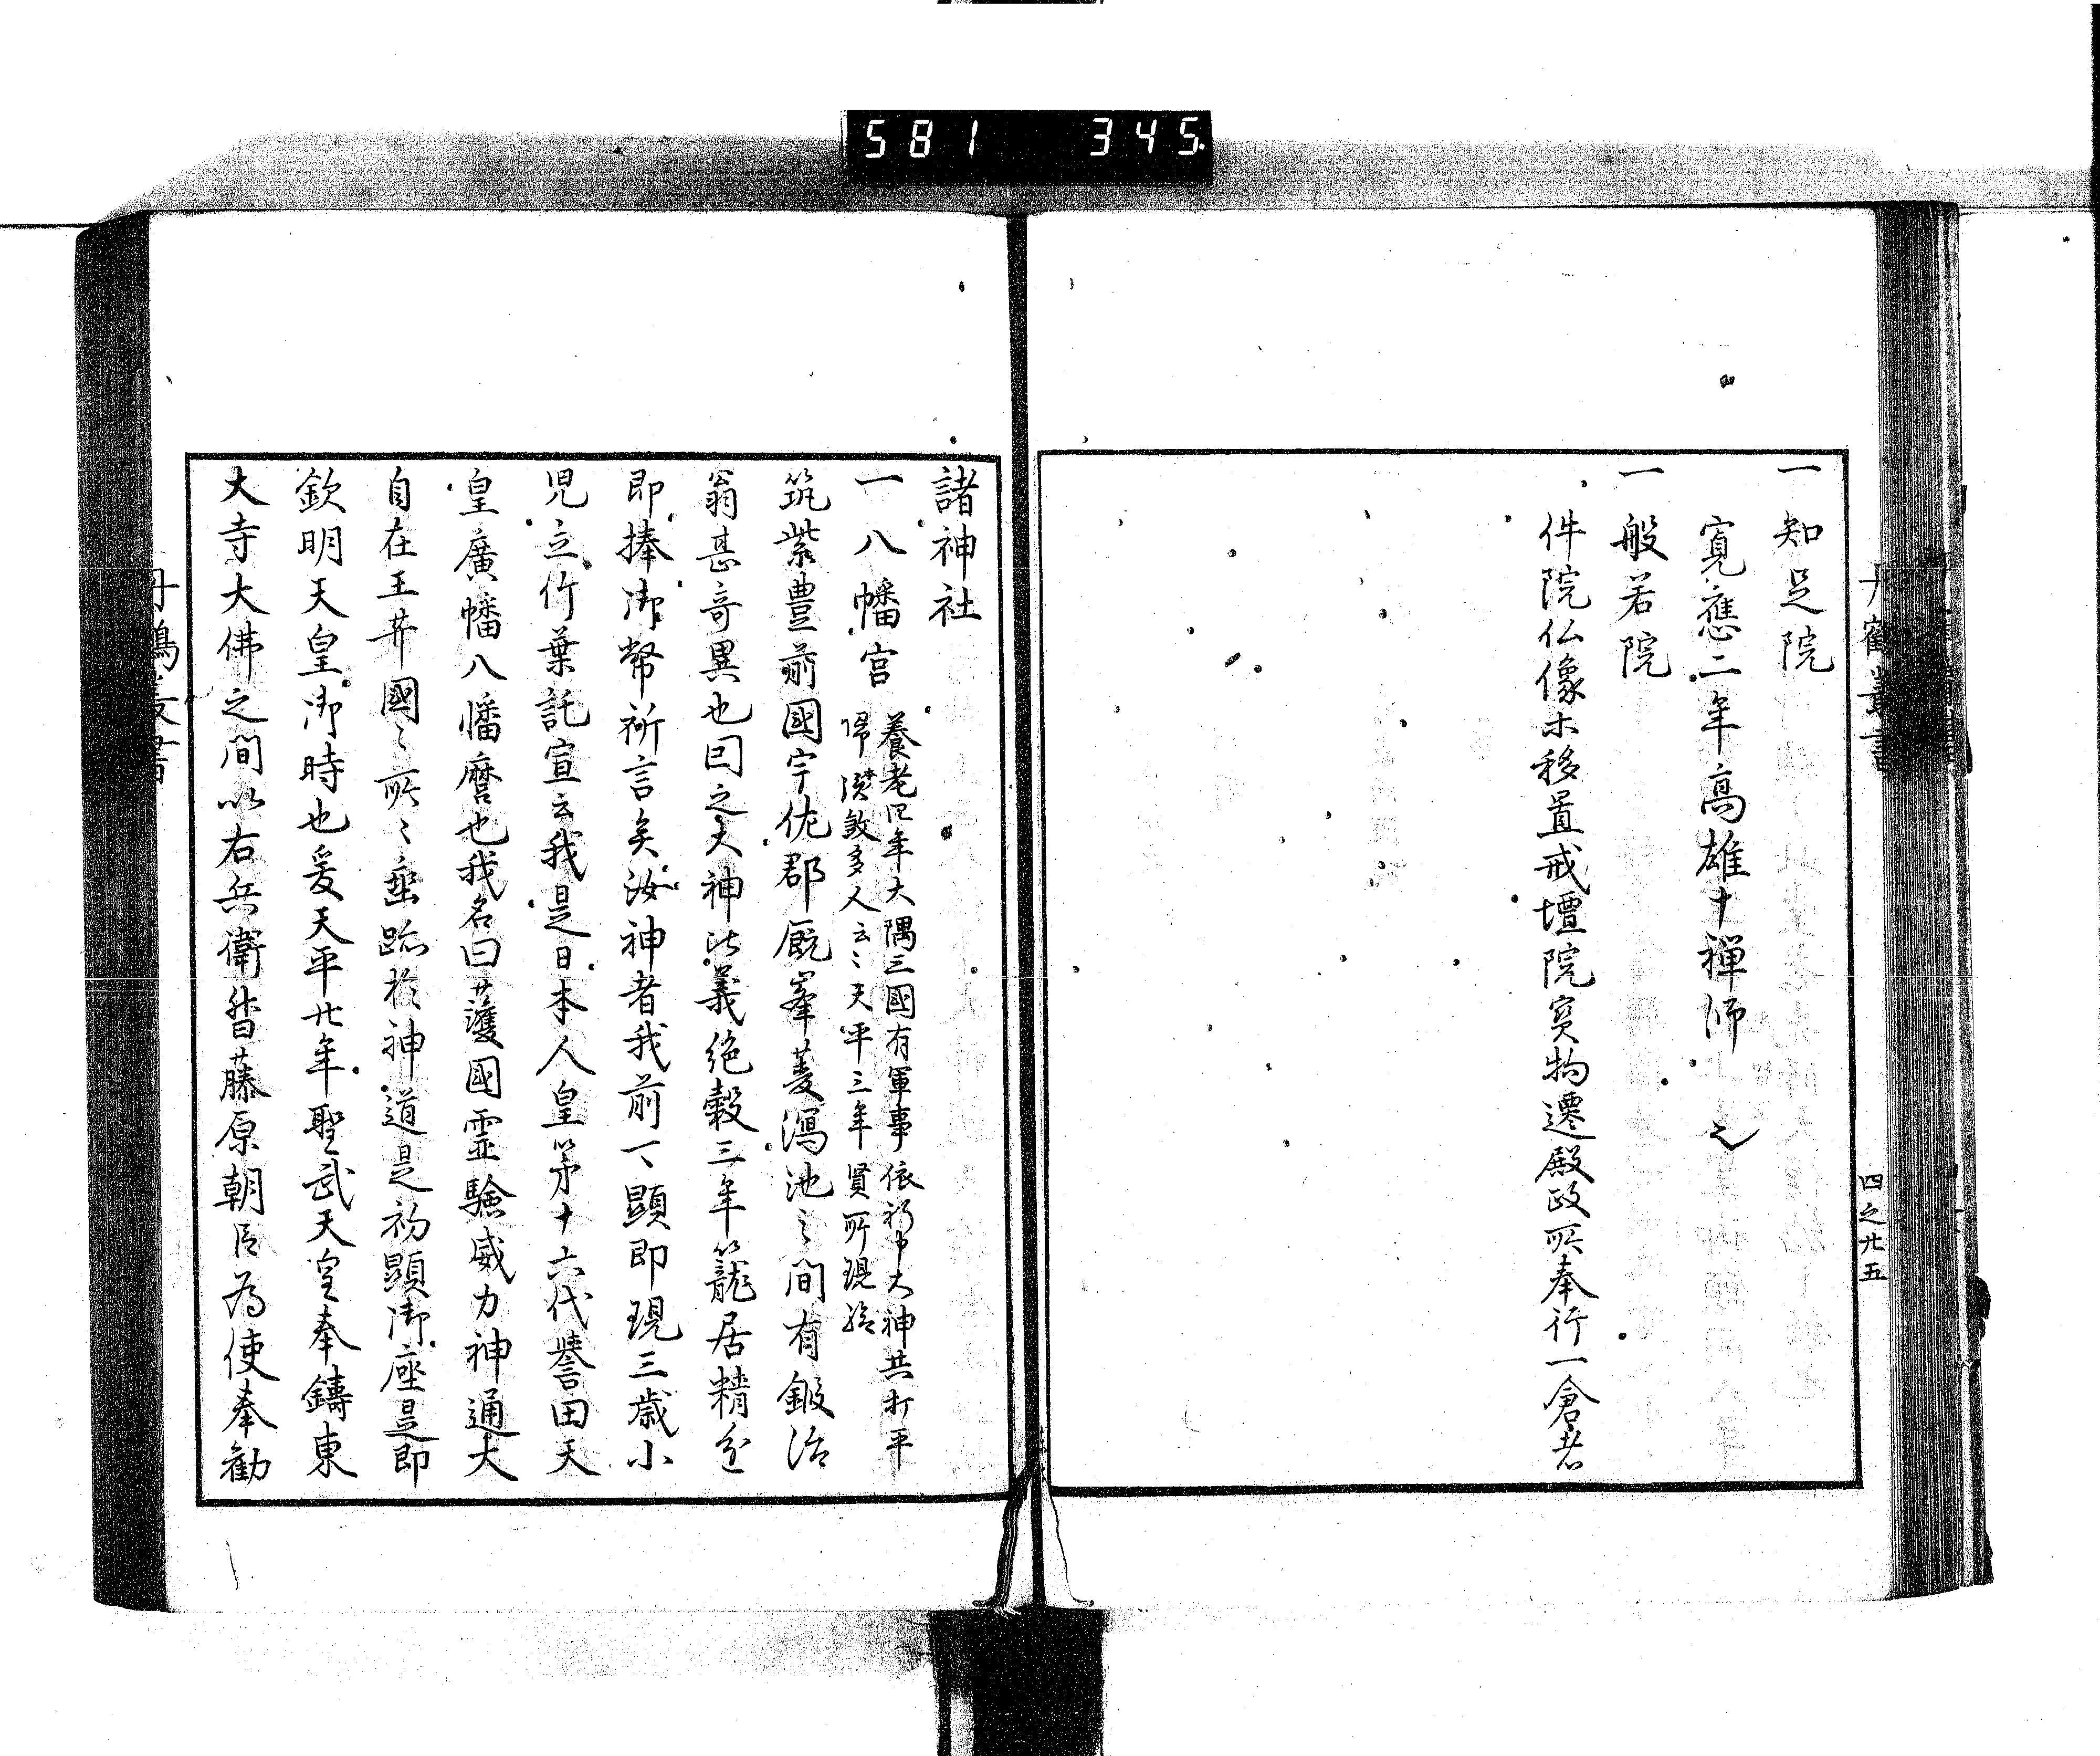 581 345
一知足院
寛應二年高雄十禅師之
一般若院
件院仏像ホ移置戒壇院宝物遷殿政所奉行一倉者
四之廿五
諸神社
一八幡宮
養老四年大隅三國有軍事依祈申大神共打平
帰済数多人云々天平三年賢所現給
筑紫豊前國宇佐郡厩峯菱瀉池之間有鍛治
翁甚奇異也因之大神比義絶穀三年籠居精進
即捧御幣祈言矣汝神者我前可顕即現三歳小
児立竹葉託宣云我是日本人皇第十六代誉田天
皇廣幡八幡麿也我名曰護國霊験威力神通大
自在王井國々所々垂跡於神道是初顕御座是即
欽明天皇御時也爰天平廿年聖武天皇奉鑄東
大寺大佛之間以右兵衛督藤原朝臣為使奉勧